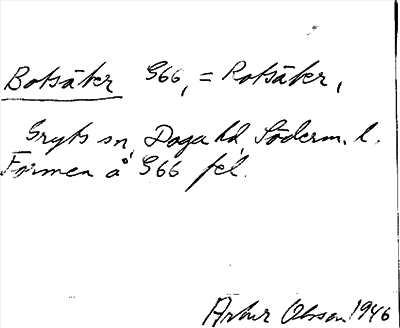 Botsäter G66, = Rotsäter,
Gryts sn, Daga hd, Söderm. l.
Formen å G66 fel.
Artur Olsson 1946